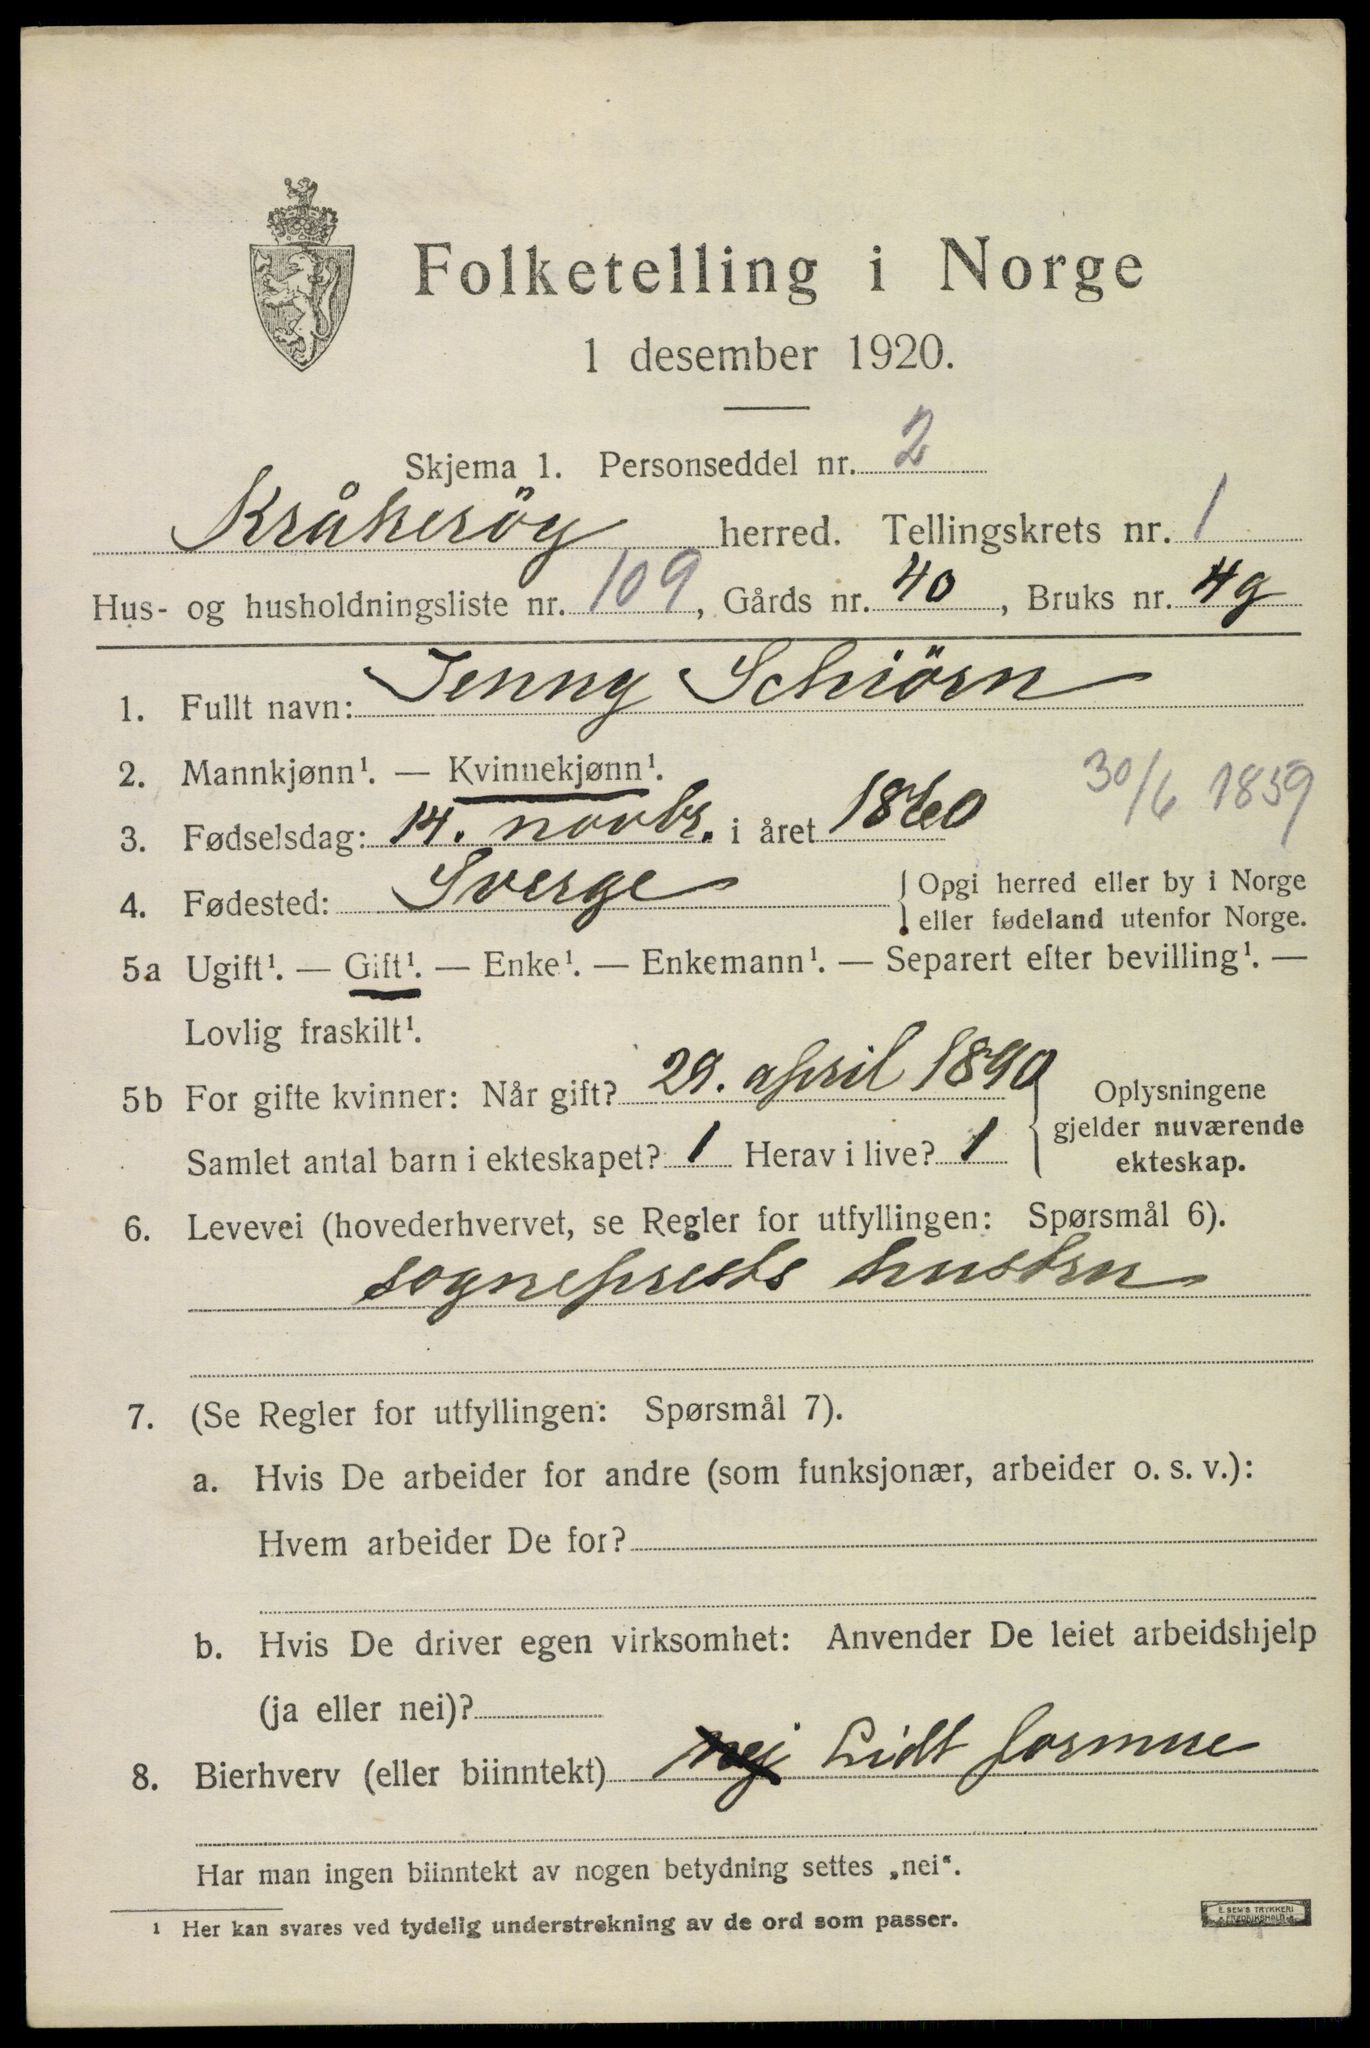 Folketelling i Norge
1 desember 1920.
Skjema 1. Personseddel nr. 2
Kråkeröy herred. Tellingskrets nr. 1
Hus- og husholdningsliste nr. 109, Gårds nr. 40, Bruks nr. 49
1. Fullt navn: Jenny Schiörn
2. Mannkjønn¹. — Kvinnekjønn¹.
30/6 1859
3. Fødselsdag: 14. novbr. i året 1860
4. Fødested: Sverge { Opgi herred eller by i Norge
eller fødeland utenfor Norge.
5a Ugift¹. — Gift¹. — Enke¹. — Enkemann¹. — Separert efter bevilling¹. —
Lovlig fraskilt¹.
5b For gifte kvinner: Når gift? 29. april 1890
Samlet antal barn i ekteskapet? 1 Herav i live? 1
Oplysningene
gjelder nuværende
ekteskap.
6. Levevei (hovederhvervet, se Regler for utfyllingen: Spørsmål 6).
sogneprests hustru
7. (Se Regler for utfyllingen: Spørsmål 7).
a. Hvis De arbeider for andre (som funksjonær, arbeider o. s. v.):
Hvem arbeider De for?
b. Hvis De driver egen virksomhet: Anvender De leiet arbeidshjelp
(ja eller nei)?
8. Bierhverv (eller biinntekt) nej Lidt formue
Har man ingen biinntekt av nogen betydning settes „nei“.
¹ Her kan svares ved tydelig understrekning av de ord som passer.
E. SEM'S TRYKKERI
FREDRIKSHALD